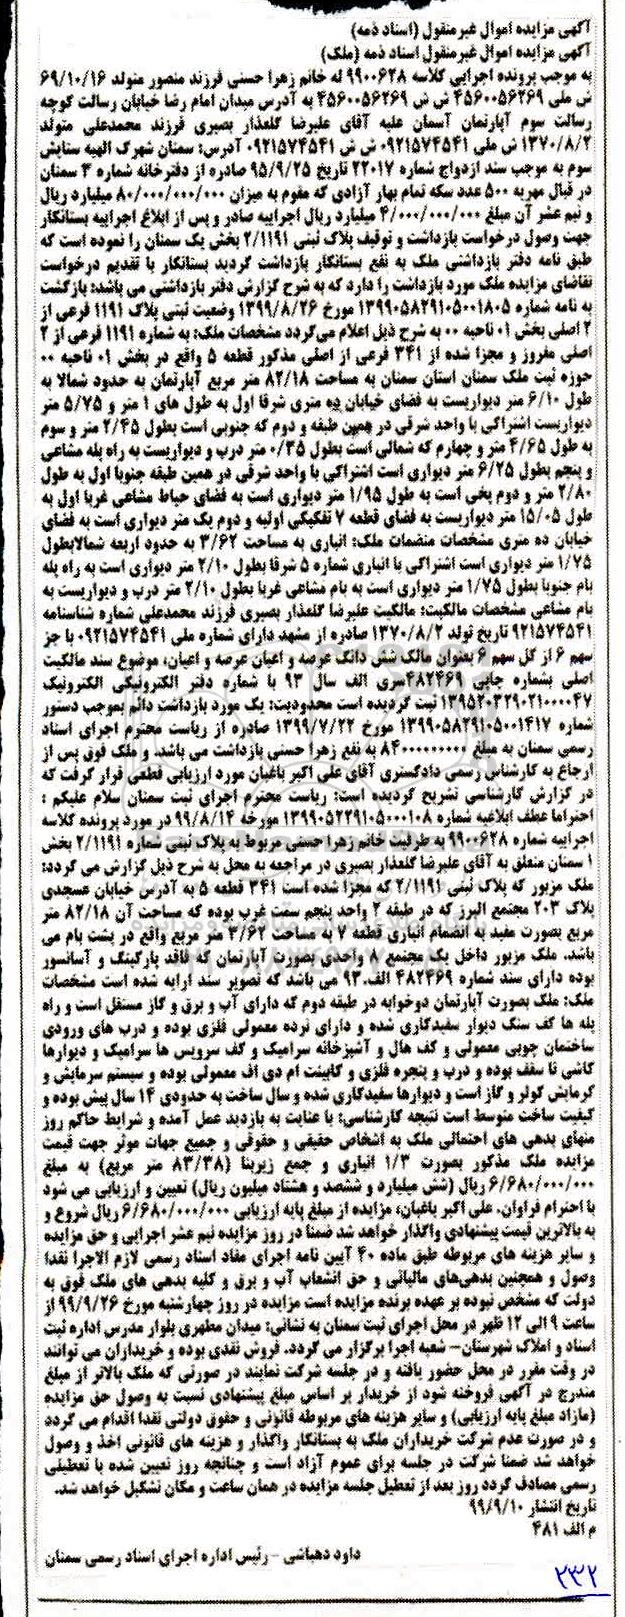 آگهی مزایده اموال غیرمنقول (اسناد ذمه)
آگهی مزایده اموال غیرمنقول اسناد ذمه (ملک)
به موجب پرونده اجرایی کلاسه ۹۹۰۰۶۲۸ له خانم زهرا حسنی فرزند منصور متولد ۶۹/۱۰/۱۶
ش ملی ۴۵۶۰۰۵۶۲۶۹ ش ش ۴۵۶۰۰۵۶۲۶۹ به آدرس میدان امام رضا خیابان رسالت کوچه
رسالت سوم آپارتمان آسمان علیه آقای علیرضا گلعذار بصیری فرزند محمدعلی متولد
۱۳۷۰/۸/۲ ش ملی ۰۹۲۱۵۷۴۵۴۱ ش ش ۰۹۲۱۵۷۴۵۴۱ آدرس: سمنان شهرک الهیه ستایش
سوم به موجب سند ازدواج شماره ۲۲۰۱۷ تاریخ ۹۵/۹/۲۵ صادره از دفترخانه شماره ۳ سمنان
در قبال مهریه ۵۰۰ عدد سکه تمام بهار آزادی که مقوم به میزان ۸۰/۰۰۰/۰۰۰/۰۰۰ میلیارد ریال
و نیم عشر آن مبلغ ۴/۰۰۰/۰۰۰/۰۰۰ میلیارد ریال اجراییه صادر و پس از ابلاغ اجراییه بستانکار
جهت وصول درخواست بازداشت و توقیف پلاک ثبتی ۲/۱۱۹۱ بخش یک سمنان را نموده است که
طبق نامه دفتر بازداشتی ملک به نفع بستانکار بازداشت گردید بستانکار با تقدیم درخواست
تقاضای مزایده ملک مورد بازداشت را دارد که به شرح گزارش دفتر بازداشتی می باشد: بازگشت
به نامه شماره ۱۳۹۹۰۵۸۲۹۱۰۵۰۰۱۸۰۵ مورخ ۱۳۹۹/۸/۲۶ وضعیت ثبتی پلاک ۱۱۹۱ فرعی از
۲ اصلی بخش ۰۱ ناحیه ۰۰ به شرح ذیل اعلام می‌گردد مشخصات ملک: به شماره ۱۱۹۱ فرعی از ۲
اصلی مفروز و مجزا شده از ۳۴۱ فرعی از اصلی مذکور قطعه ۵ واقع در بخش ۰۱ ناحیه ۰۰
حوزه ثبت ملک سمنان استان سمنان به مساحت ۸۲/۱۸ متر مربع آپارتمان به حدود شمالا به
طول ۶/۱۰ متر دیواریست به فضای خیابان ده متری شرقا اول به طول های ۱ متر و ۵/۷۵ متر
دیواریست اشتراکی با واحد شرقی در همین طبقه و دوم که جنوبی است بطول ۲/۴۵ متر و سوم
به طول ۴/۶۵ متر و چهارم که شمالی است بطول ۰/۳۵ متر درب و دیواریست به راه پله مشاعی
و پنجم بطول ۶/۲۵ متر دیواری است اشتراکی با واحد شرقی در همین طبقه جنوبا اول به طول
۲/۸۰ متر و دوم پخی است به طول ۱/۹۵ متر دیواری است به فضای حیاط مشاعی غربا اول به
طول ۱۵/۰۵ متر دیواریست به فضای قطعه ۷ تفکیکی اولیه و دوم یک متر دیواری است به فضای
خیابان ده متری مشخصات منضمات ملک: انباری به مساحت ۳/۶۲ به حدود اربعه شمالابطول
۱/۷۵ متر دیواری است اشتراکی با انباری شماره ۵ شرقا بطول ۲/۱۰ متر دیواری است به راه پله
بام جنوبا بطول ۱/۷۵ متر دیواری است به بام مشاعی غربا بطول ۲/۱۰ متر درب و دیواریست به
بام مشاعی مشخصات مالکیت: مالکیت علیرضا گلعذار بصیری فرزند محمدعلی شماره شناسنامه
۹۲۱۵۷۴۵۴۱ تاریخ تولد ۱۳۷۰/۸/۲ صادره از مشهد دارای شماره ملی ۰۹۲۱۵۷۴۵۴۱ با جز
سهم ۶ از کل سهم ۶ بعنوان مالک شش دانگ عرصه و اعیان عرصه و اعیان، موضوع سند مالکیت
اصلی بشماره چاپی ۴۸۲۴۶۹سری الف سال ۹۳ با شماره دفتر الکترونیکی الکترونیک
۱۳۹۵۲۰۳۲۹۰۲۱۰۰۰۰۴۷ ثبت گردیده است محدودیت: یک مورد بازداشت دائم بموجب دستور
شماره ۱۳۹۹۰۵۸۲۹۱۰۵۰۰۱۴۱۷ مورخ ۱۳۹۹/۷/۲۲ صادره از ریاست محترم اجرای اسناد
رسمی سمنان به مبلغ ۸۴۰۰۰۰۰۰۰۰۰ به نفع زهرا حسنی بازداشت می باشد. و ملک فوق پس از
ارجاع به کارشناس رسمی دادگستری آقای علی اکبر باغبان مورد ارزیابی قطعی قرار گرفت که
در گزارش کارشناسی تشریح گردیده است: ریاست محترم اجرای ثبت سمنان سلام علیکم :
احتراما عطف ابلاغیه شماره ۱۳۹۹۰۵۲۲۹۱۰۵۰۰۰۱۰۸ مورخه ۹۹/۸/۱۴ در مورد پرونده کلاسه
اجراییه شماره ۹۹۰۰۶۲۸ به طرفیت خانم زهرا حسنی مربوط به پلاک ثبتی شماره ۲/۱۱۹۱ بخش
۱ سمنان متعلق به آقای علیرضا گلعذار بصیری در مراجعه به محل به شرح ذیل گزارش می گردد:
ملک مزبور که پلاک ثبتی ۲/۱۱۹۱ که مجزا شده است ۳۴۱ قطعه ۵ به آدرس خیابان عسجدی
پلاک ۲۰۳ مجتمع البرز که در طبقه ۲ واحد پنجم سمت غرب بوده که مساحت آن ۸۲/۱۸ متر
مربع بصورت مفید به انضمام انباری قطعه ۷ به مساحت ۳/۶۲ متر مربع واقع در پشت بام می
باشد. ملک مزبور داخل یک مجتمع ۸ واحدی بصورت آپارتمان که فاقد پارکینگ و آسانسور
بوده دارای سند شماره ۴۸۲۴۶۹ الف.۹۳ می باشد که تصویر سند ارایه شده است مشخصات
ملک: ملک بصورت آپارتمان دوخوابه در طبقه دوم که دارای آب و برق و گاز مستقل است و راه
پله ها کف سنگ دیوار سفیدکاری شده و دارای نرده معمولی فلزی بوده و درب های ورودی
ساختمان چوبی معمولی و کف هال و آشپزخانه سرامیک و کف سرویس ها سرامیک و دیوارها
کاشی تا سقف بوده و درب و پنجره فلزی و کابینت ام دی اف معمولی بوده و سیستم سرمایش و
گرمایش کولر و گاز است و دیوارها سفیدکاری شده و سال ساخت به حدودی ۱۴ سال پیش بوده و
کیفیت ساخت متوسط است نتیجه کارشناسی: با عنایت به بازدید عمل آمده و شرایط حاکم روز
منهای بدهی های احتمالی ملک به اشخاص حقیقی و حقوقی و جمیع جهات موثر جهت قیمت
مزایده ملک مذکور بصورت ۱/۳ انباری و جمع زیربنا (۸۳/۳۸ متر مربع) به مبلغ
۶/۶۸۰/۰۰۰/۰۰۰ ریال (شش میلیارد و ششصد و هشتاد میلیون ریال) تعیین و ارزیابی می شود
با احترام فراوان. علی اکبر باغبان؛ مزایده از مبلغ پایه ارزیابی ۶/۶۸۰/۰۰۰/۰۰۰ ریال شروع و
به بالاترین قیمت پیشنهادی واگذار خواهد شد ضمنا در روز مزایده نیم عشر اجرایی و حق مزایده
و سایر هزینه های مربوطه طبق ماده ۴۰ آیین نامه اجرای مفاد اسناد رسمی لازم الاجرا نقدا
وصول و همچنین بدهی‌های مالیاتی و حق انشعاب آب و برق و کلیه بدهی های ملک فوق به
دولت که مشخص نبوده بر عهده برنده مزایده است مزایده در روز چهارشنبه مورخ ۹۹/۹/۲۶ از
ساعت ۹ الی ۱۲ ظهر در محل اجرای ثبت سمنان به نشانی: میدان مطهری بلوار مدرس اداره ثبت
اسناد و املاک شهرستان– شعبه اجرا برگزار می گردد. فروش نقدی بوده و خریداران می توانند
در وقت مقرر در محل حضور یافته و در جلسه شرکت نمایند در صورتی که ملک بالاتر از مبلغ
مندرج در آگهی فروخته شود از خریدار بر اساس مبلغ پیشنهادی نسبت به وصول حق مزایده
(مازاد مبلغ پایه ارزیابی) و سایر هزینه های مربوطه قانونی و حقوق دولتی نقدا اقدام می گردد
و در صورت عدم شرکت خریداران ملک به بستانکار واگذار و هزینه های قانونی اخذ و وصول
خواهد شد ضمنا شرکت در جلسه برای عموم آزاد است و چنانچه روز تعیین شده با تعطیلی
رسمی مصادف گردد روز بعد از تعطیل جلسه مزایده در همان ساعت و مکان تشکیل خواهد شد.
تاریخ انتشار ۹۹/۹/۱۰
م الف ۴۸۱
داود دهباشی – رئیس اداره اجرای اسناد رسمی سمنان
۲۳۲